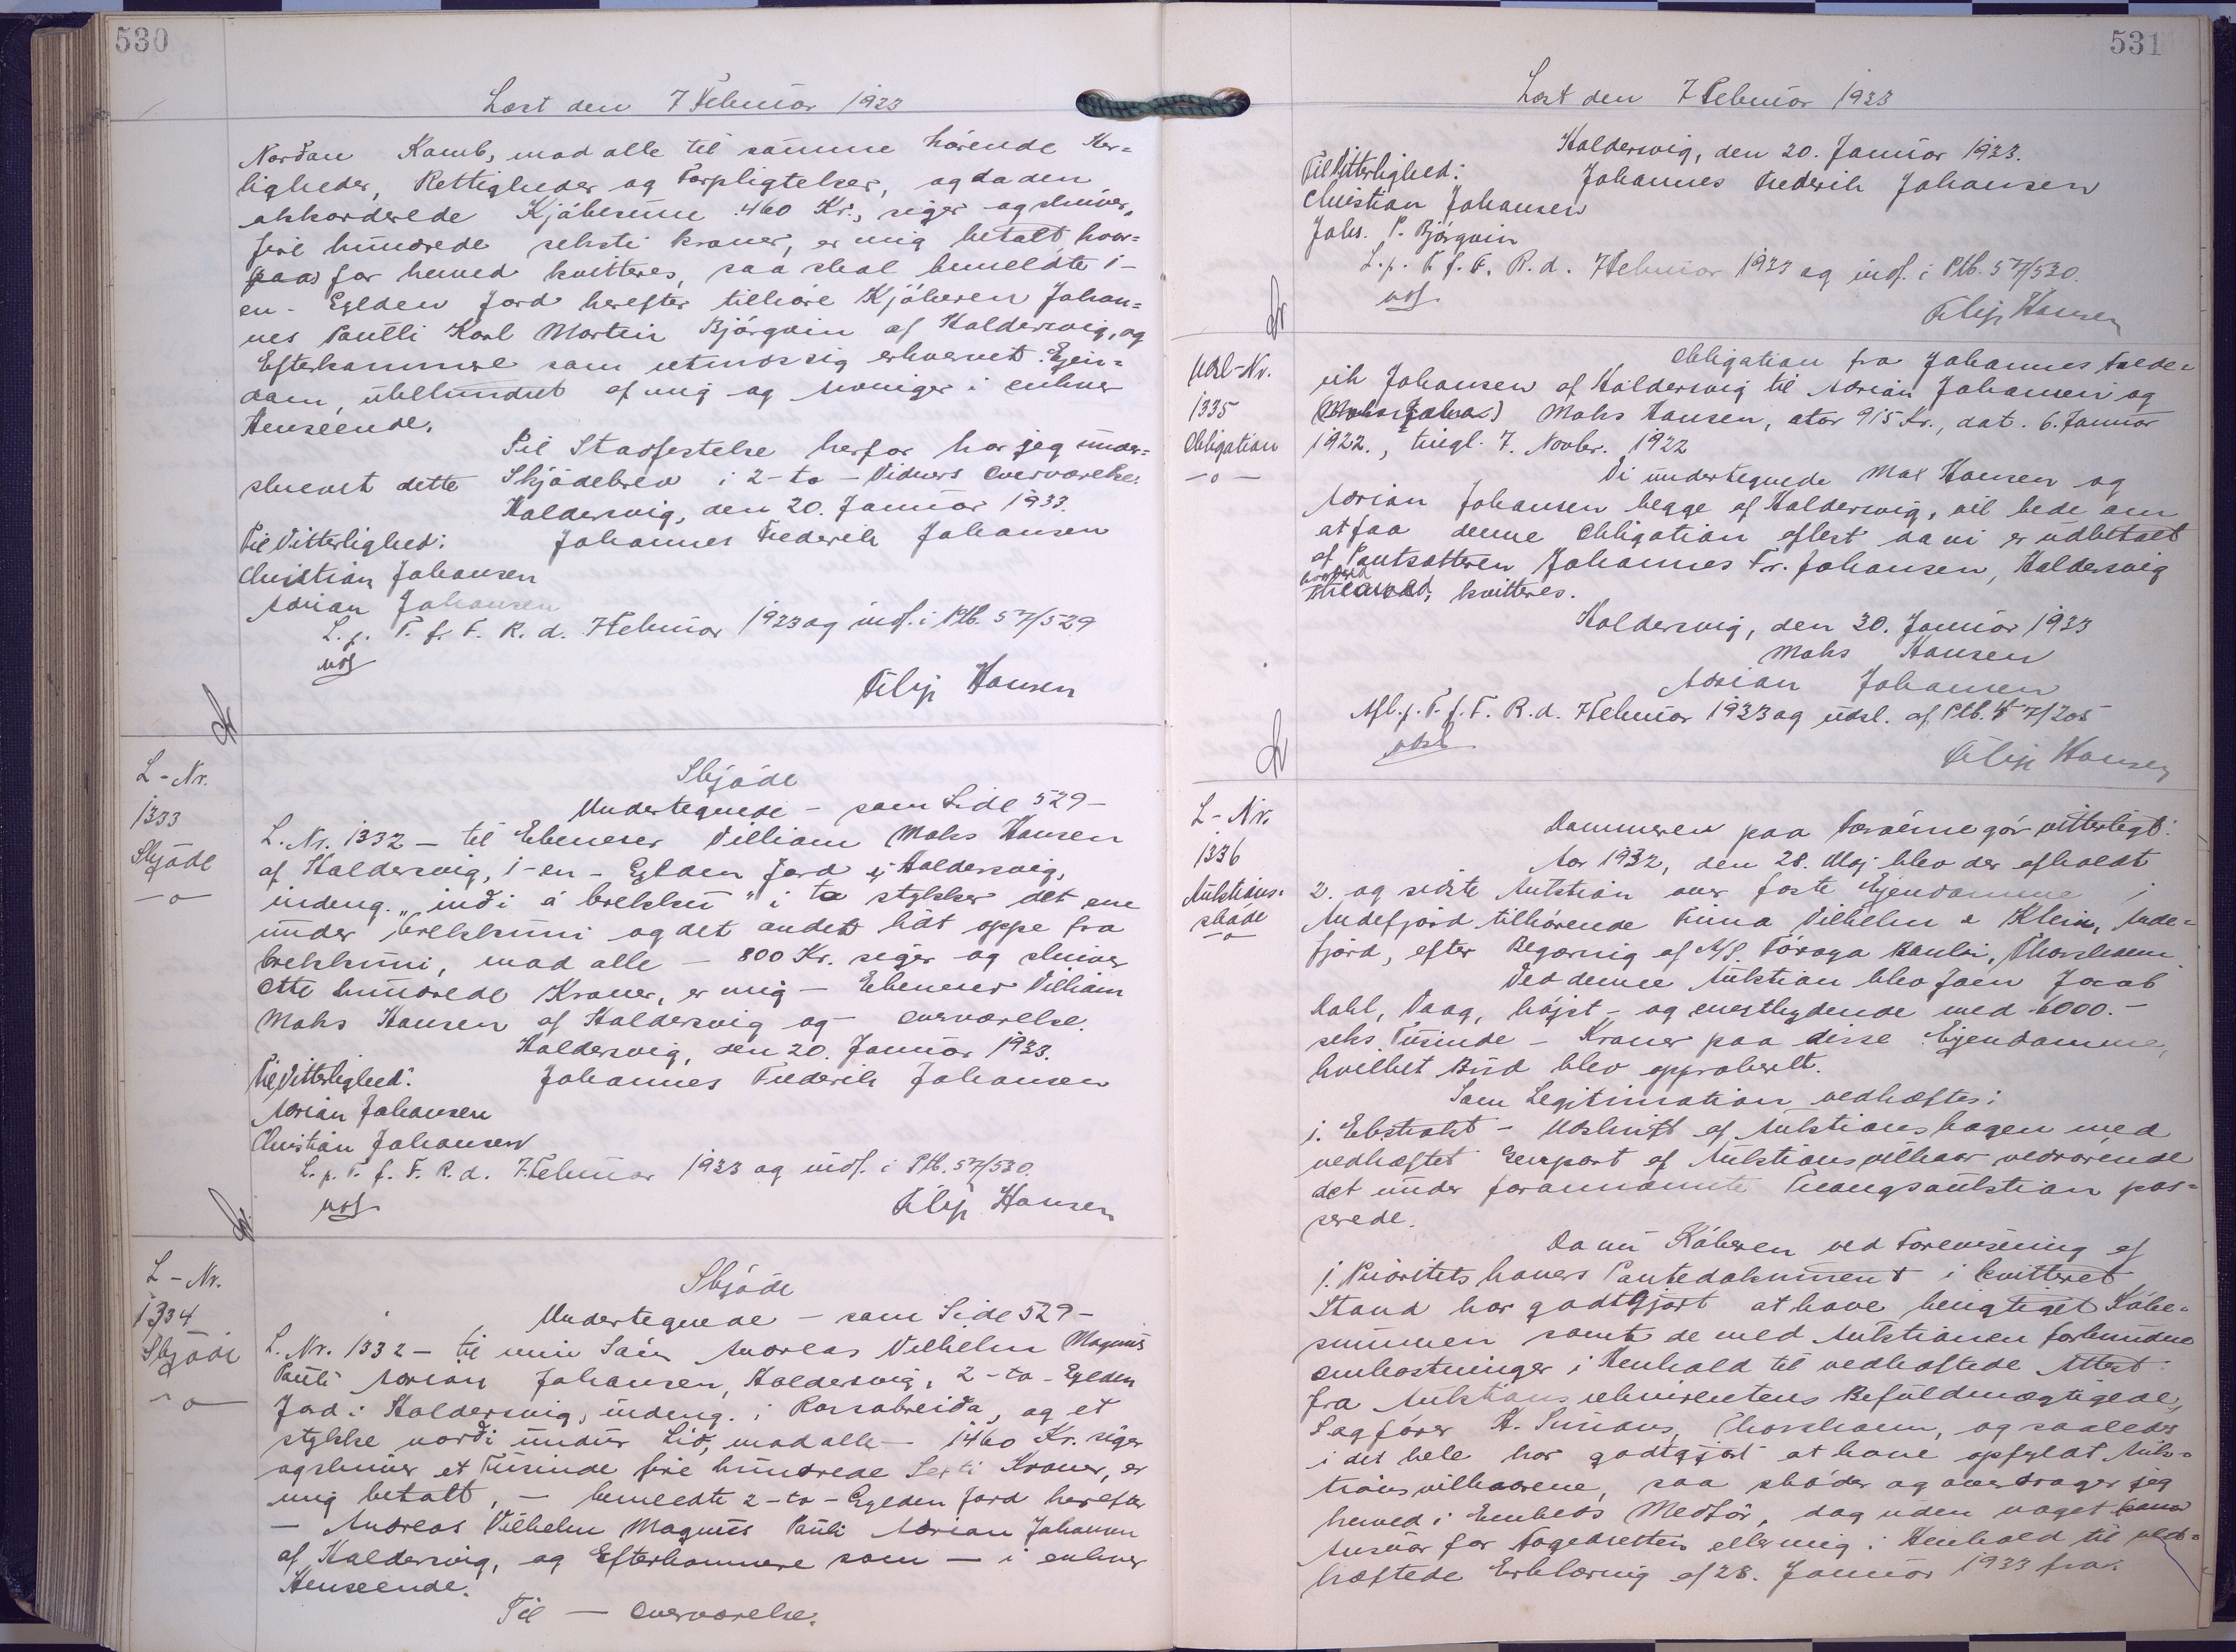 530
Læst den 7 Februar 1933
Norðan Kamb, med alle til samme hörende Her=
ligheder, Rettigheder og Forpligtelser, og da den
akkorderede Kjöbesum 460 Kr., siger og skriver,
fire hundrede seksti kroner, er mig betalt, hvor=
for herved kvitteres, saa skal bemeldte 1-
en - Gylden Jord herefter tilhöre Kjöberen Johan=
nes Poulli Karl Martin Björgvin af Haldersvig, og
Efterkommere som retmæssig erhvervet Ejen=
dom, ubehindret af mig og Arvinger i enhver
Henseende.
Til Stadfestelse herfor har jeg under=
skrevet dette Skjödebrev i 2-to - Vidners Overværelse.
Haldersvig, den 20. Januar 1933.
Til Vitterlighed: Johannes Frederik Johansen
Christian Johansen
Adrian Johansen
L. p. T. f. F. R. d. 7 Februar 1933 og indf. i Ptb. 57/529
Filip Hansen
L - Nr.
1333
Skjöde
- o -
Skjöde
Undertegnede - som Side 529 -
L. Nr. 1332 - til Ebeneser Villiam Moks Hansen
af Haldersvig, 1-en - Gylden Jord i Haldersvig,
indeng. "inði á brekku" i to stykker det ene
under brekkuni og det andet hát oppe fra
brekkuni, med alle - 800 Kr. siger og skriver
otte hundrede Kroner, er mig - Ebeneser Villiam
Moks Hansen af Haldersvig og - Overværelse.
Haldersvig, den 20. Januar 1933.
Til Vitterlighed: Johannes Frederik Johansen
Adrian Johansen
Christian Johansen
L. p. T. f. F. R. d. 7 Februar 1933 og indf. i Ptb. 57/530.
Filip Hansen
L - Nr.
1334
Skjöde
- o -
Skjöde
Undertegnede - som Side 529 -
L. Nr. 1332 - til min Sön Andreas Vilhelm Magnus
Pauli Adrian Johansen, Haldersvig, 2-to - Gylden
Jord i Haldersvig, indeng. i Rossabreiða, og et
stykke norði undir Lið, med alle - 1460 Kr. siger
og skriver et Tusinde fire hundrede Seksti Kroner, er
mig betalt, - bemeldte 2-to - Gylden Jord herefter
- Andreas Vilhelm Magnus Pauli Adrian Johansen
af Haldersvig, og Efterkommere som - i enhver
Henseende.
Til - Overværelse.
531
Læst den 7 Februar 1933
Haldersvig, den 20. Januar 1933.
Til Vitterlighed: Johannes Frederik Johansen
Christian Johansen
Johs. P. Björgvin
L. p. T. f. F. R. d. 7 Februar 1933 og indf. i Ptb. 57/530.
Filip Hansen
Udsl-Nr.
1335
Obligation
- o -
Obligation fra Johannes Frede=
rik Johansen af Haldersvig til Adrian Johansen og
Moks Hansen, stor 915 Kr., dat. 6. Januar
1922., tingl. 7. Novbr. 1922
Vi undertegnede Max Hansen og
Adrian Johansen begge af Haldersvig, vil bede om
at faa denne Obligation aflest da vi er udbetalt
af Pantsætteren Johannes Fr. Johansen, Haldersvig
hvorved kvitteres.
Haldersvig, den 30. Januar 1933
Moks Hansen
Adrian Johansen
Afl. p. T. f. F. R. d. 7 Februar 1933 og udsl. af Ptb. 47/205
Filip Hansen
L - Nr.
1336
Auktions=
sköde
- o -
Dommeren paa Færöerne gör vitterligt:
Aar 1932, den 28. Maj blev der afholdt
2. og sidste Auktion over faste Ejendomme i
Andefjord tilhörende Firma Vilhelm & Klein, Ande=
fjord, efter Begæring af A/S. Föroya Banki, Thorshavn
Ved denne Auktion blev Joen Jacob
Dahl, Vaag, höjst - og enestbydende med 6000.-
seks Tusinde - Kroner paa disse Ejendomme,
hvilket Bud blev approberet.
Som Legitimation vedhæftes:
1. Ekstrakt - Udskrift af Auktionsbogen med
vedhæftet Genpart af Auktionsvilkaar vedrörende
det under forannævnte Tvangsauktion pas=
serede.
Da nu Köberen ved Forevisning af
1. Prioritetshavers Pantedokument i kvitteret
Stand har godtgjort at have berigtiget Köbe=
summen samt de med Auktionen forbundne
Omkostninger i Henhold til vedhæftede Attest
fra Auktionsrekvirentens Befuldmægtigede,
Sagförer H. Simons, Thorshavn, og saaledes
i det hele har godtgjort at have opfyldt Auk=
tionsvilkaarene, saa sköder og overdrager jeg
herved i Embeds Medför, dog uden noget
Ansvar for Fogedretten eller mig i Henhold til ved=
hæftede Erklæring af 28. Januar 1933 fra